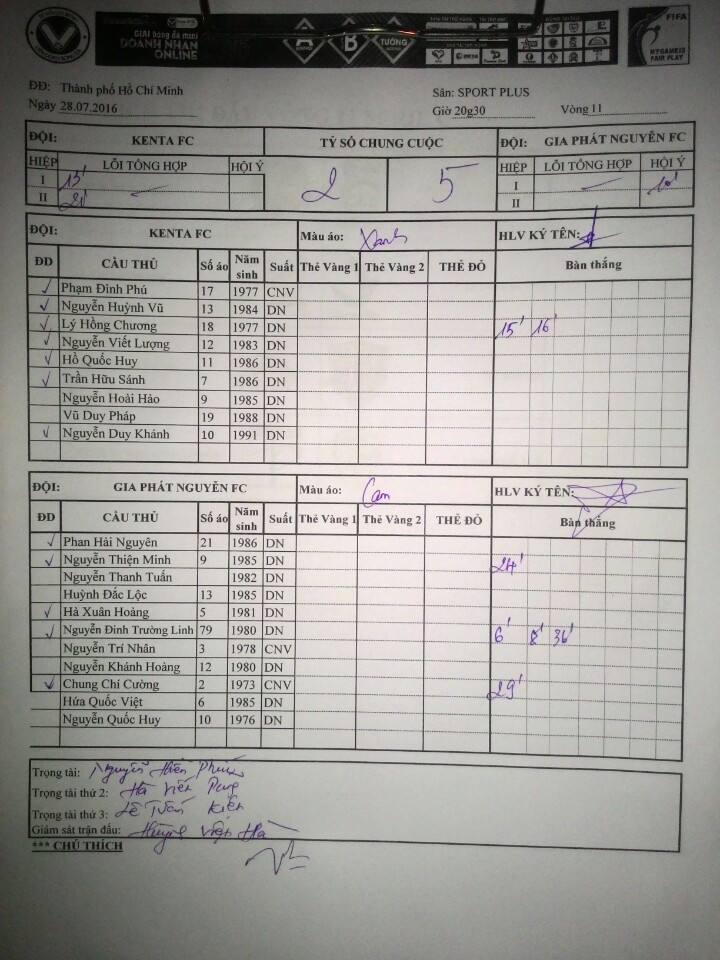 GIẢI bóng đá mini
DOANH NHÂN
ONLINE
A B TƯỚNG
FIFA
MY GAME IS
FAIR PLAY
ĐĐ: Thành phố Hồ Chí Minh Sân: SPORT PLUS
Ngày 28.07.2016 Giờ 20g30 Vòng 11
ĐỘI: KENTA FC TỶ SỐ CHUNG CUỘC ĐỘI: GIA PHÁT NGUYỄN FC
HIỆP LỖI TỔNG HỢP HỘI Ý 2 5 HIỆP LỖI TỔNG HỢP HỘI Ý
I 15' I 10'
II 21' II
ĐỘI: KENTA FC Màu áo: Xanh HLV KÝ TÊN:
ĐD CẦU THỦ Số áo Năm sinh Suất Thẻ Vàng 1 Thẻ Vàng 2 THẺ ĐỎ Bàn thắng
✓ Phạm Đình Phú 17 1977 CNV
✓ Nguyễn Huỳnh Vũ 13 1984 DN
✓ Lý Hồng Chương 18 1977 DN 15' 16'
✓ Nguyễn Viết Lượng 12 1983 DN
✓ Hồ Quốc Huy 11 1986 DN
✓ Trần Hữu Sánh 7 1986 DN
Nguyễn Hoài Hảo 9 1985 DN
Vũ Duy Pháp 19 1988 DN
✓ Nguyễn Duy Khánh 10 1991 DN
ĐỘI: GIA PHÁT NGUYỄN FC Màu áo: Cam HLV KÝ TÊN:
ĐD CẦU THỦ Số áo Năm sinh Suất Thẻ Vàng 1 Thẻ Vàng 2 THẺ ĐỎ Bàn thắng
✓ Phan Hải Nguyên 21 1986 DN
✓ Nguyễn Thiện Minh 9 1985 DN 24'
Nguyễn Thanh Tuấn 1982 DN
Huỳnh Đắc Lộc 13 1985 DN
✓ Hà Xuân Hoảng 5 1981 DN
✓ Nguyễn Đình Trường Linh 79 1980 DN 6' 8' 36'
Nguyễn Trí Nhân 3 1978 CNV
Nguyễn Khánh Hoàng 12 1980 DN
✓ Chung Chí Cường 2 1973 CNV 29'
Hứa Quốc Việt 6 1985 DN
Nguyễn Quốc Huy 10 1976 DN
Trọng tài: Nguyễn Hiền
Trọng tài thứ 2: Hà Viết
Trọng tài thứ 3: Lê Tuấn Kiệt
Giám sát trận đấu: Huỳnh Việt Hà
*** CHÚ THÍCH